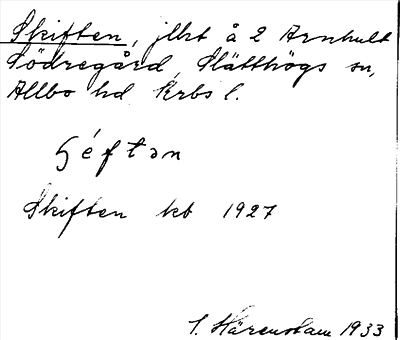 Skiften, jbrt å 2 Arnhult
Södregård, Slätthögs sn,
Allbo hd Krbs l.
ɧéftən
Skiften kb 1927
S. Härenstam 1933